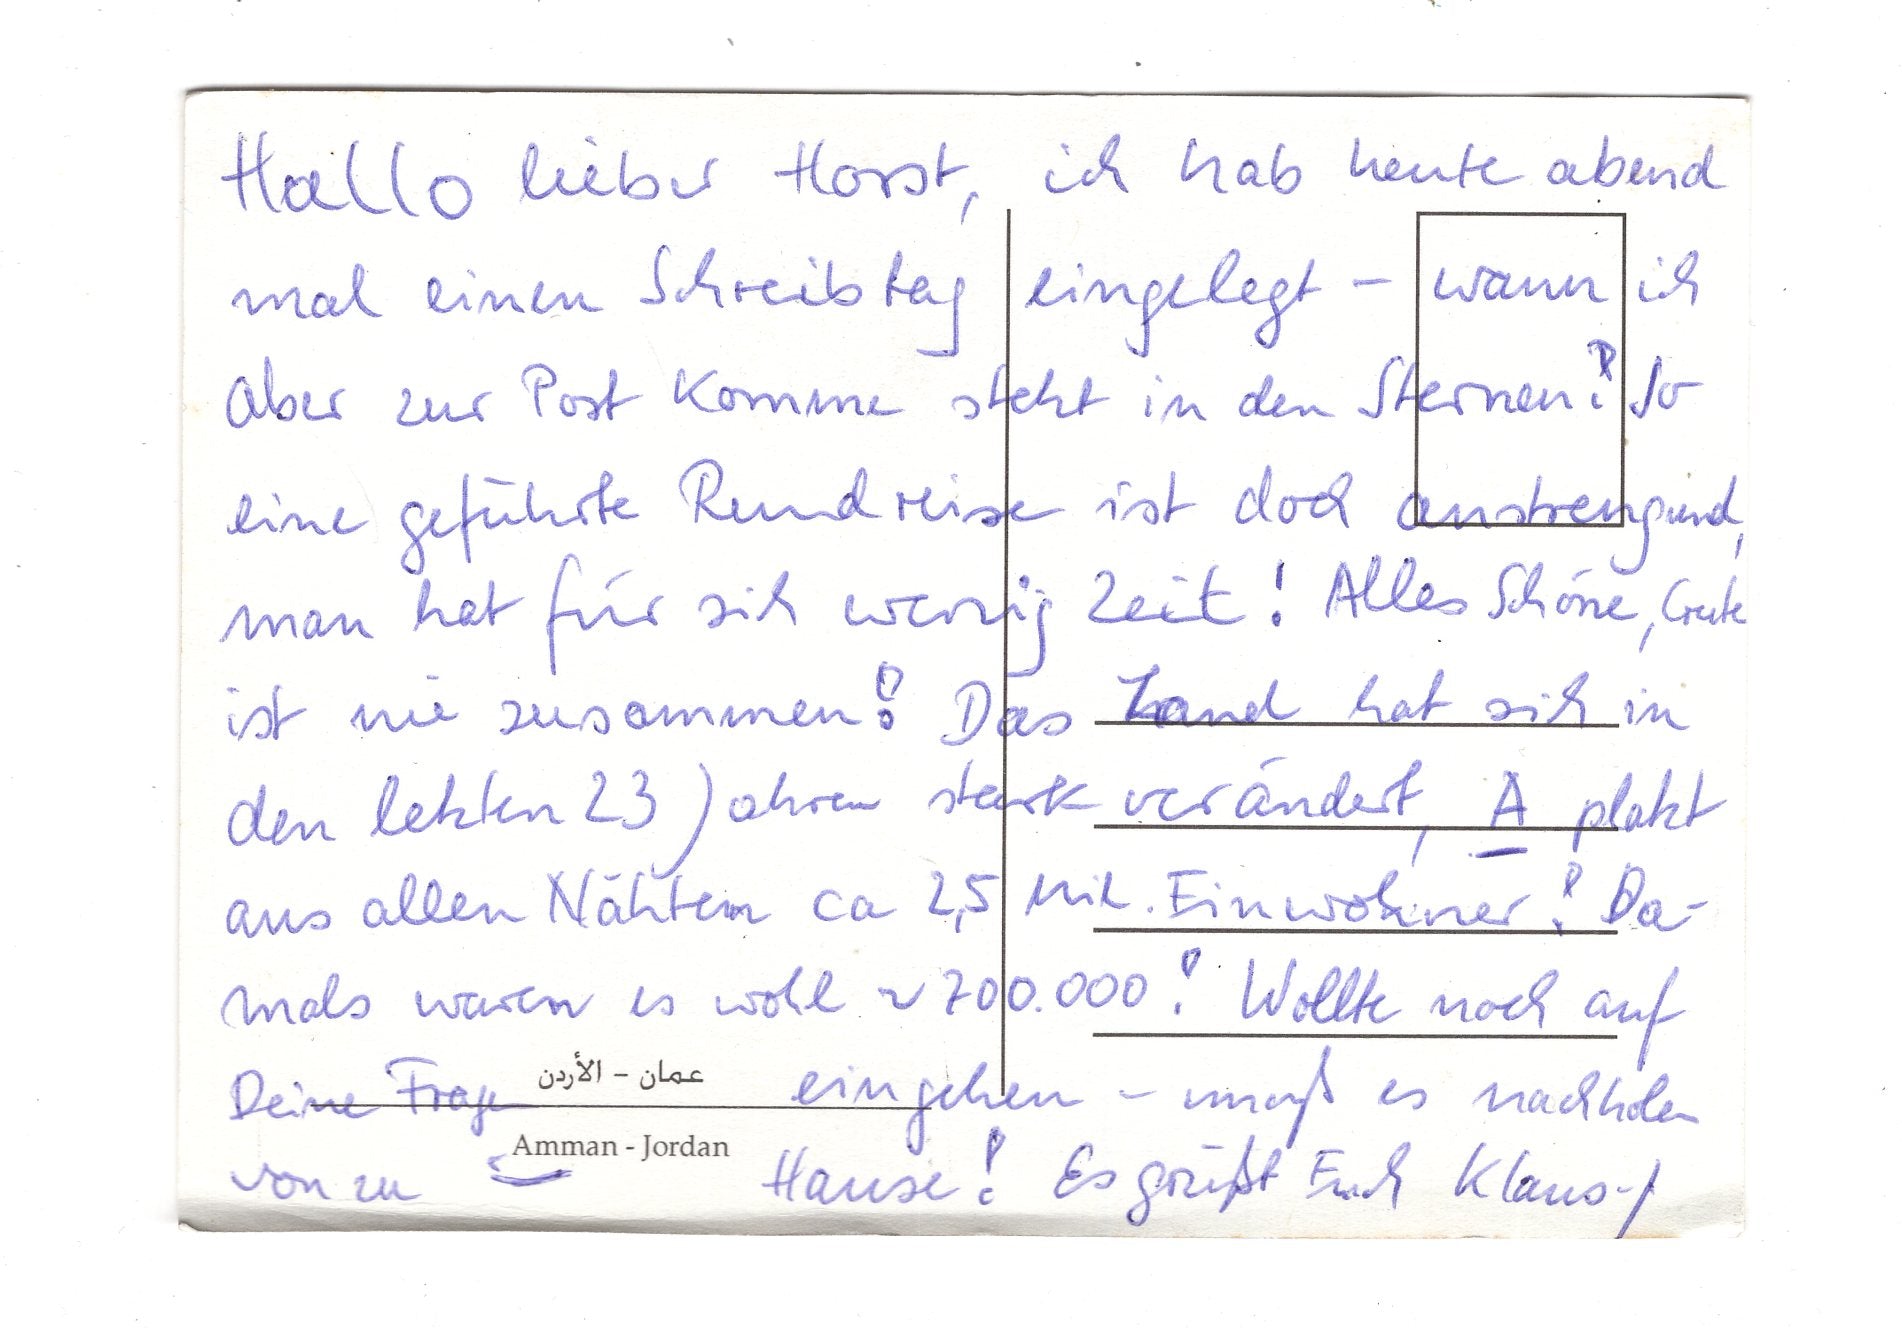 Hallo lieber Horst, ich hab heute abend
mal einen Schreibtag eingelegt – wann ich
aber zur Post komme steht in den Sternen! So
eine geführte Rundreise ist doch anstrengend,
man hat für sich wenig Zeit! Alles Schöne, Gute
ist nie zusammen! Das Land hat sich in
den letzten 23 Jahren stark verändert, A platzt
aus allen Nähten ca 2,5 Mil. Einwohner! Da-
mals waren es wohl ~ 700.000! Wollte noch auf
عمان - الأردن
Deine Frage eingehen – muß es nachholen
Amman - Jordan
von zu Hause! Es grüßt Euch Klaus-